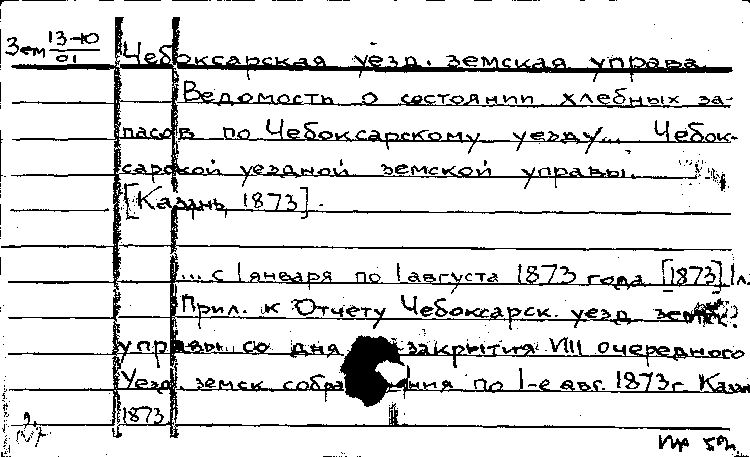 Зем 13-Ю/01 Чебоксарская уезд. земская управа
Ведомость о состоянии хлебных за-
пасов по Чебоксарскому уезду... Чебок-
сарской уездной земской управы.
[Казань, 1873].
... с 1 января по 1 августа 1873 года [1873] 1л.
Прил. к Отчету Чебоксарск. уезд земск.
управы со дня закрытия VIII очередного
Уезд. земск собра ния по 1-е авг. 1873г. Казан
1873